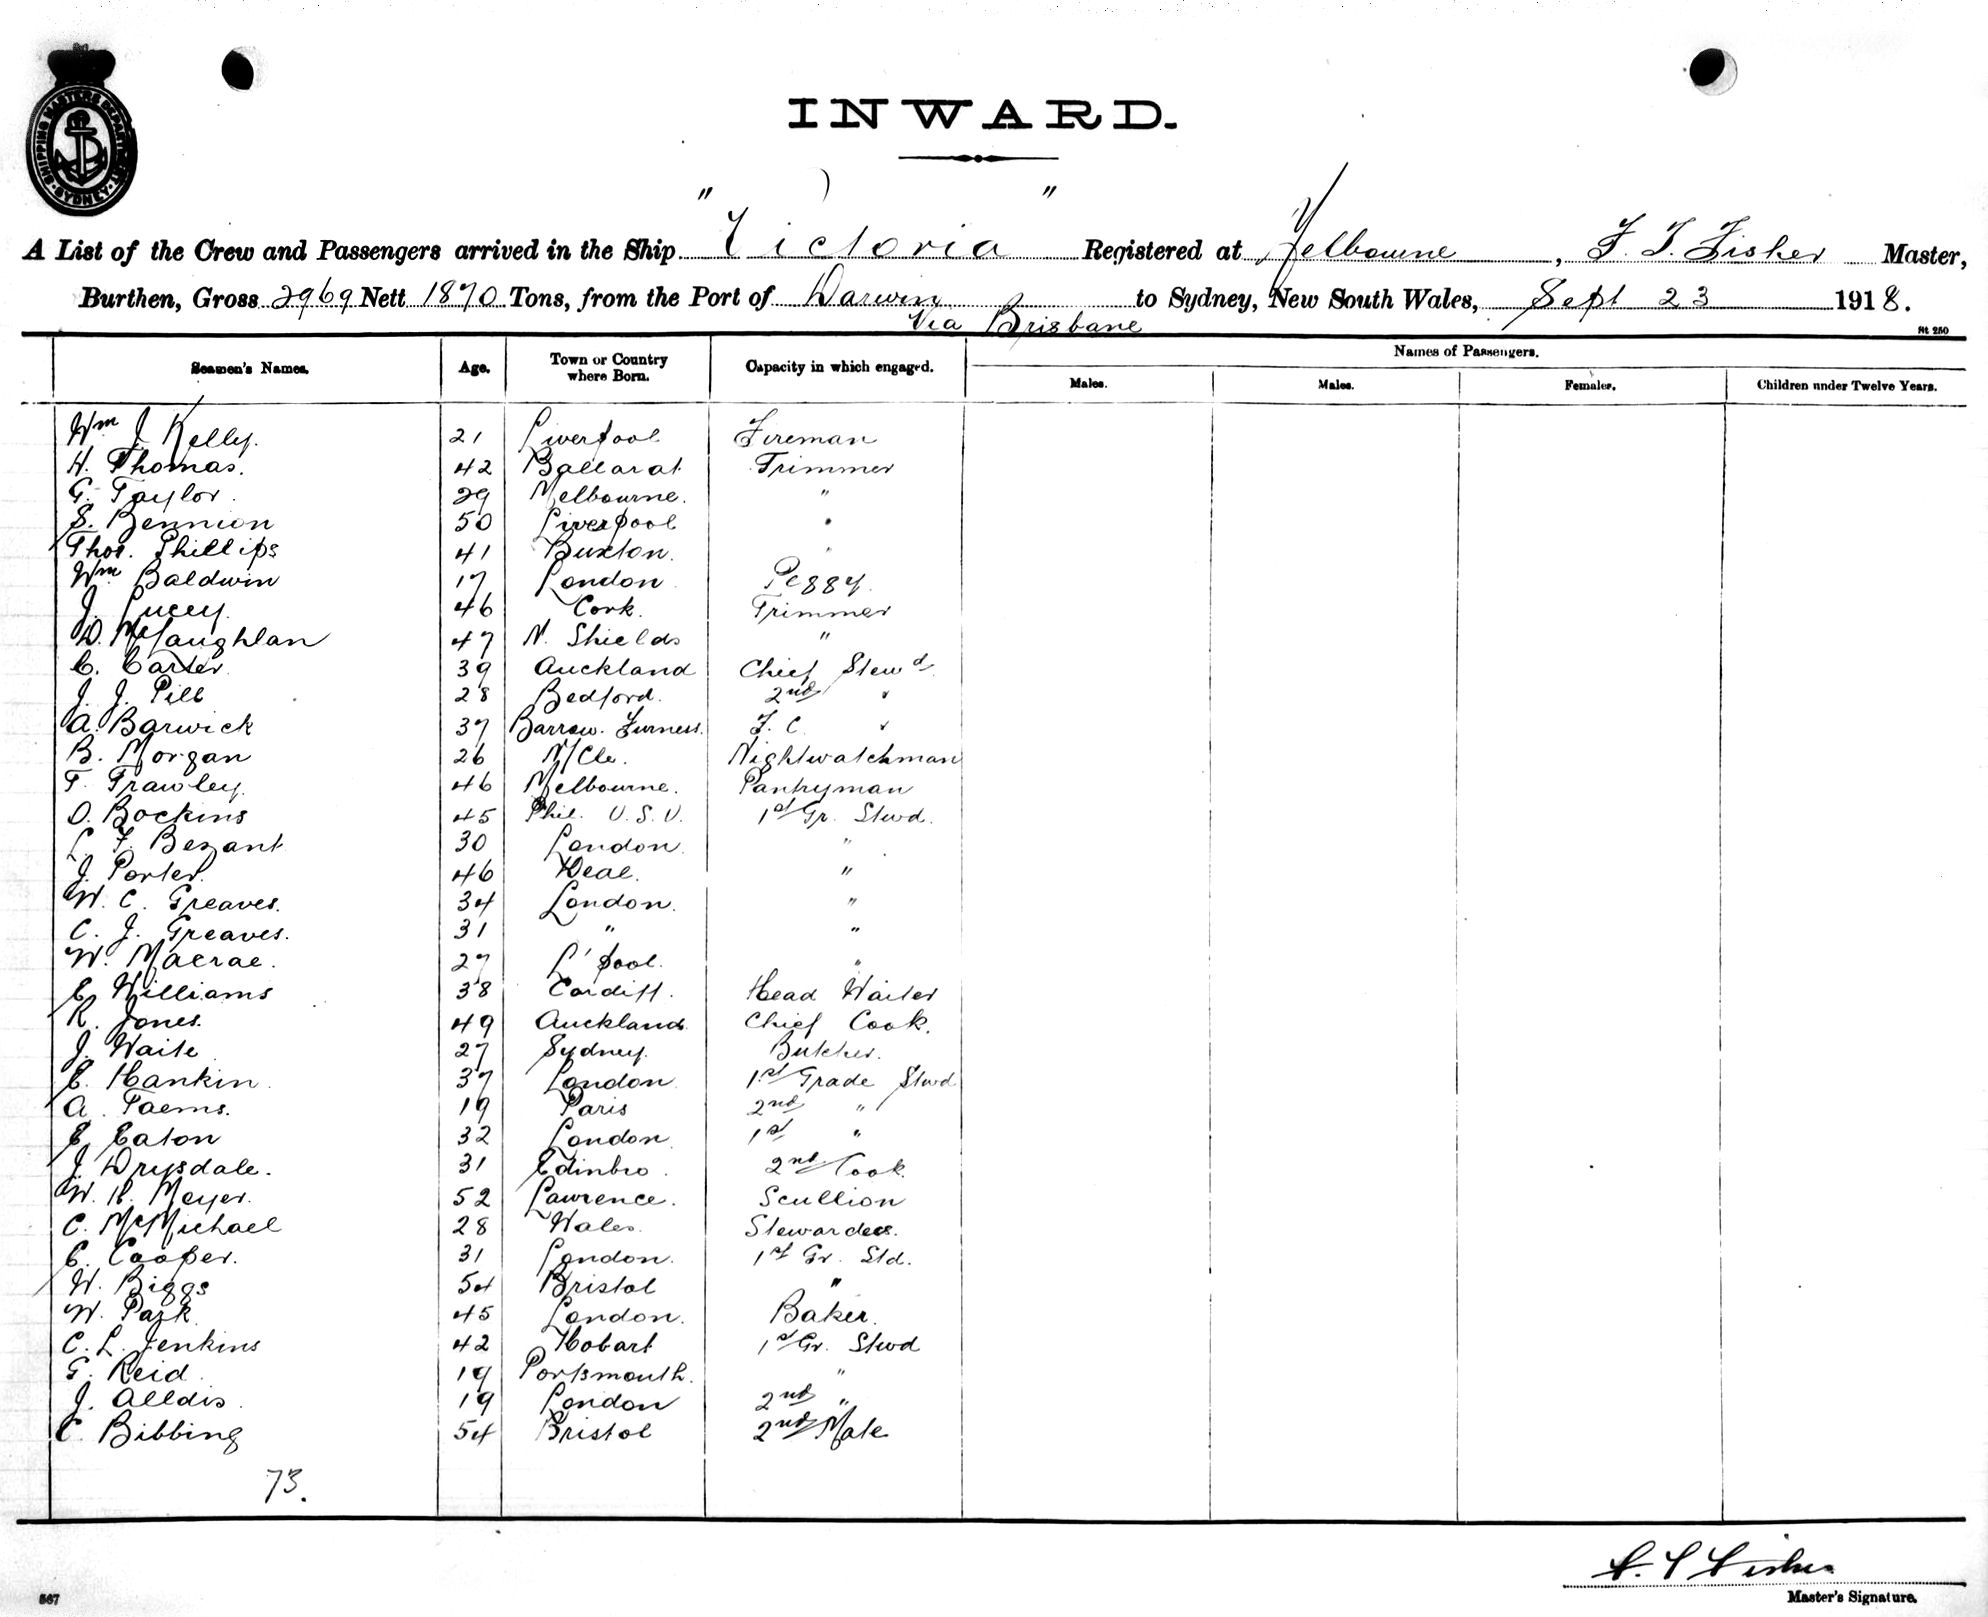 SHIPPING MASTERS DEPARTMENT
SYDNEY
INWARD.
A List of the Crew and Passengers arrived in the Ship "Victoria" Registered at Melbourne, F. T. Fisher Master,
Burthen, Gross 2969 Nett 1870 Tons, from the Port of Darwin to Sydney, New South Wales, Sept 23 1918.
Via Brisbane
St 250
Seamen's Names. Age. Town or Country where Born. Capacity in which engaged. Names of Passengers.
Males. Males. Females. Children under Twelve Years.
Wm J Kelly. 21 Liverpool Fireman
H. Thomas. 42 Ballarat Trimmer
G. Taylor. 29 Melbourne. "
S. Bennion 50 Liverpool "
Thos. Phillips 41 Buxton. "
Wm Baldwin 17 London Peggy.
J. Lucey. 46 Cork. Trimmer
D. McLaughlan 47 N. Shields "
C. Carter. 39 Auckland Chief Stewd
J. J. Pill 28 Bedford. 2nd "
A. Barwick 37 Barrow. Furness. F. C. "
B. Morgan 26 N/Cle. Nightwatchman
T. Frawley. 46 Melbourne. Pantryman
O. Bockins 45 Phil. U.S.U. 1st Gr. Stwd.
L. F. Bezant 30 London. "
J. Porter. 46 Deal. "
W. C. Greaves. 34 London. "
C. J. Greaves. 31 " "
W. Macrae. 27 L'pool. "
E. Williams 38 Cardiff. Head Waiter
R. Jones. 49 Auckland. Chief Cook.
J. Waite 27 Sydney. Butcher.
E. Hankin. 37 London 1st Grade Stwd
A. Paems. 19 Paris 2nd "
E. Eaton 32 London 1st "
J. Drysdale. 31 Edinbro. 2nd Cook.
W. H. Meyer. 52 Lawrence. Scullion
C. McMichael 28 Wales. Stewardess.
C. Cooper. 31 London. 1st Gr. Std.
W. Biggs 54 Bristol "
W. Park 45 London. Baker.
C. L. Jenkins 42 Hobart 1st Gr. Stwd
G. Reid. 19 Portsmouth. "
J. Alldis. 19 London 2nd "
C. Bibbing 54 Bristol 2nd Mate
73.
Master's Signature.
567